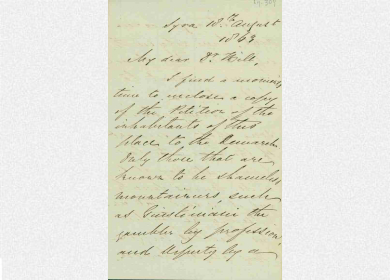 Syra 18th August
1863
My dear Dr. Hill,
I find a moment
time to enclose a copy
of the Petition of the
inhabitants of this
place to the Demarch
Only those that are
known to be shameless
mountaineers, such
as the
gambler by profession
and Deputy by a